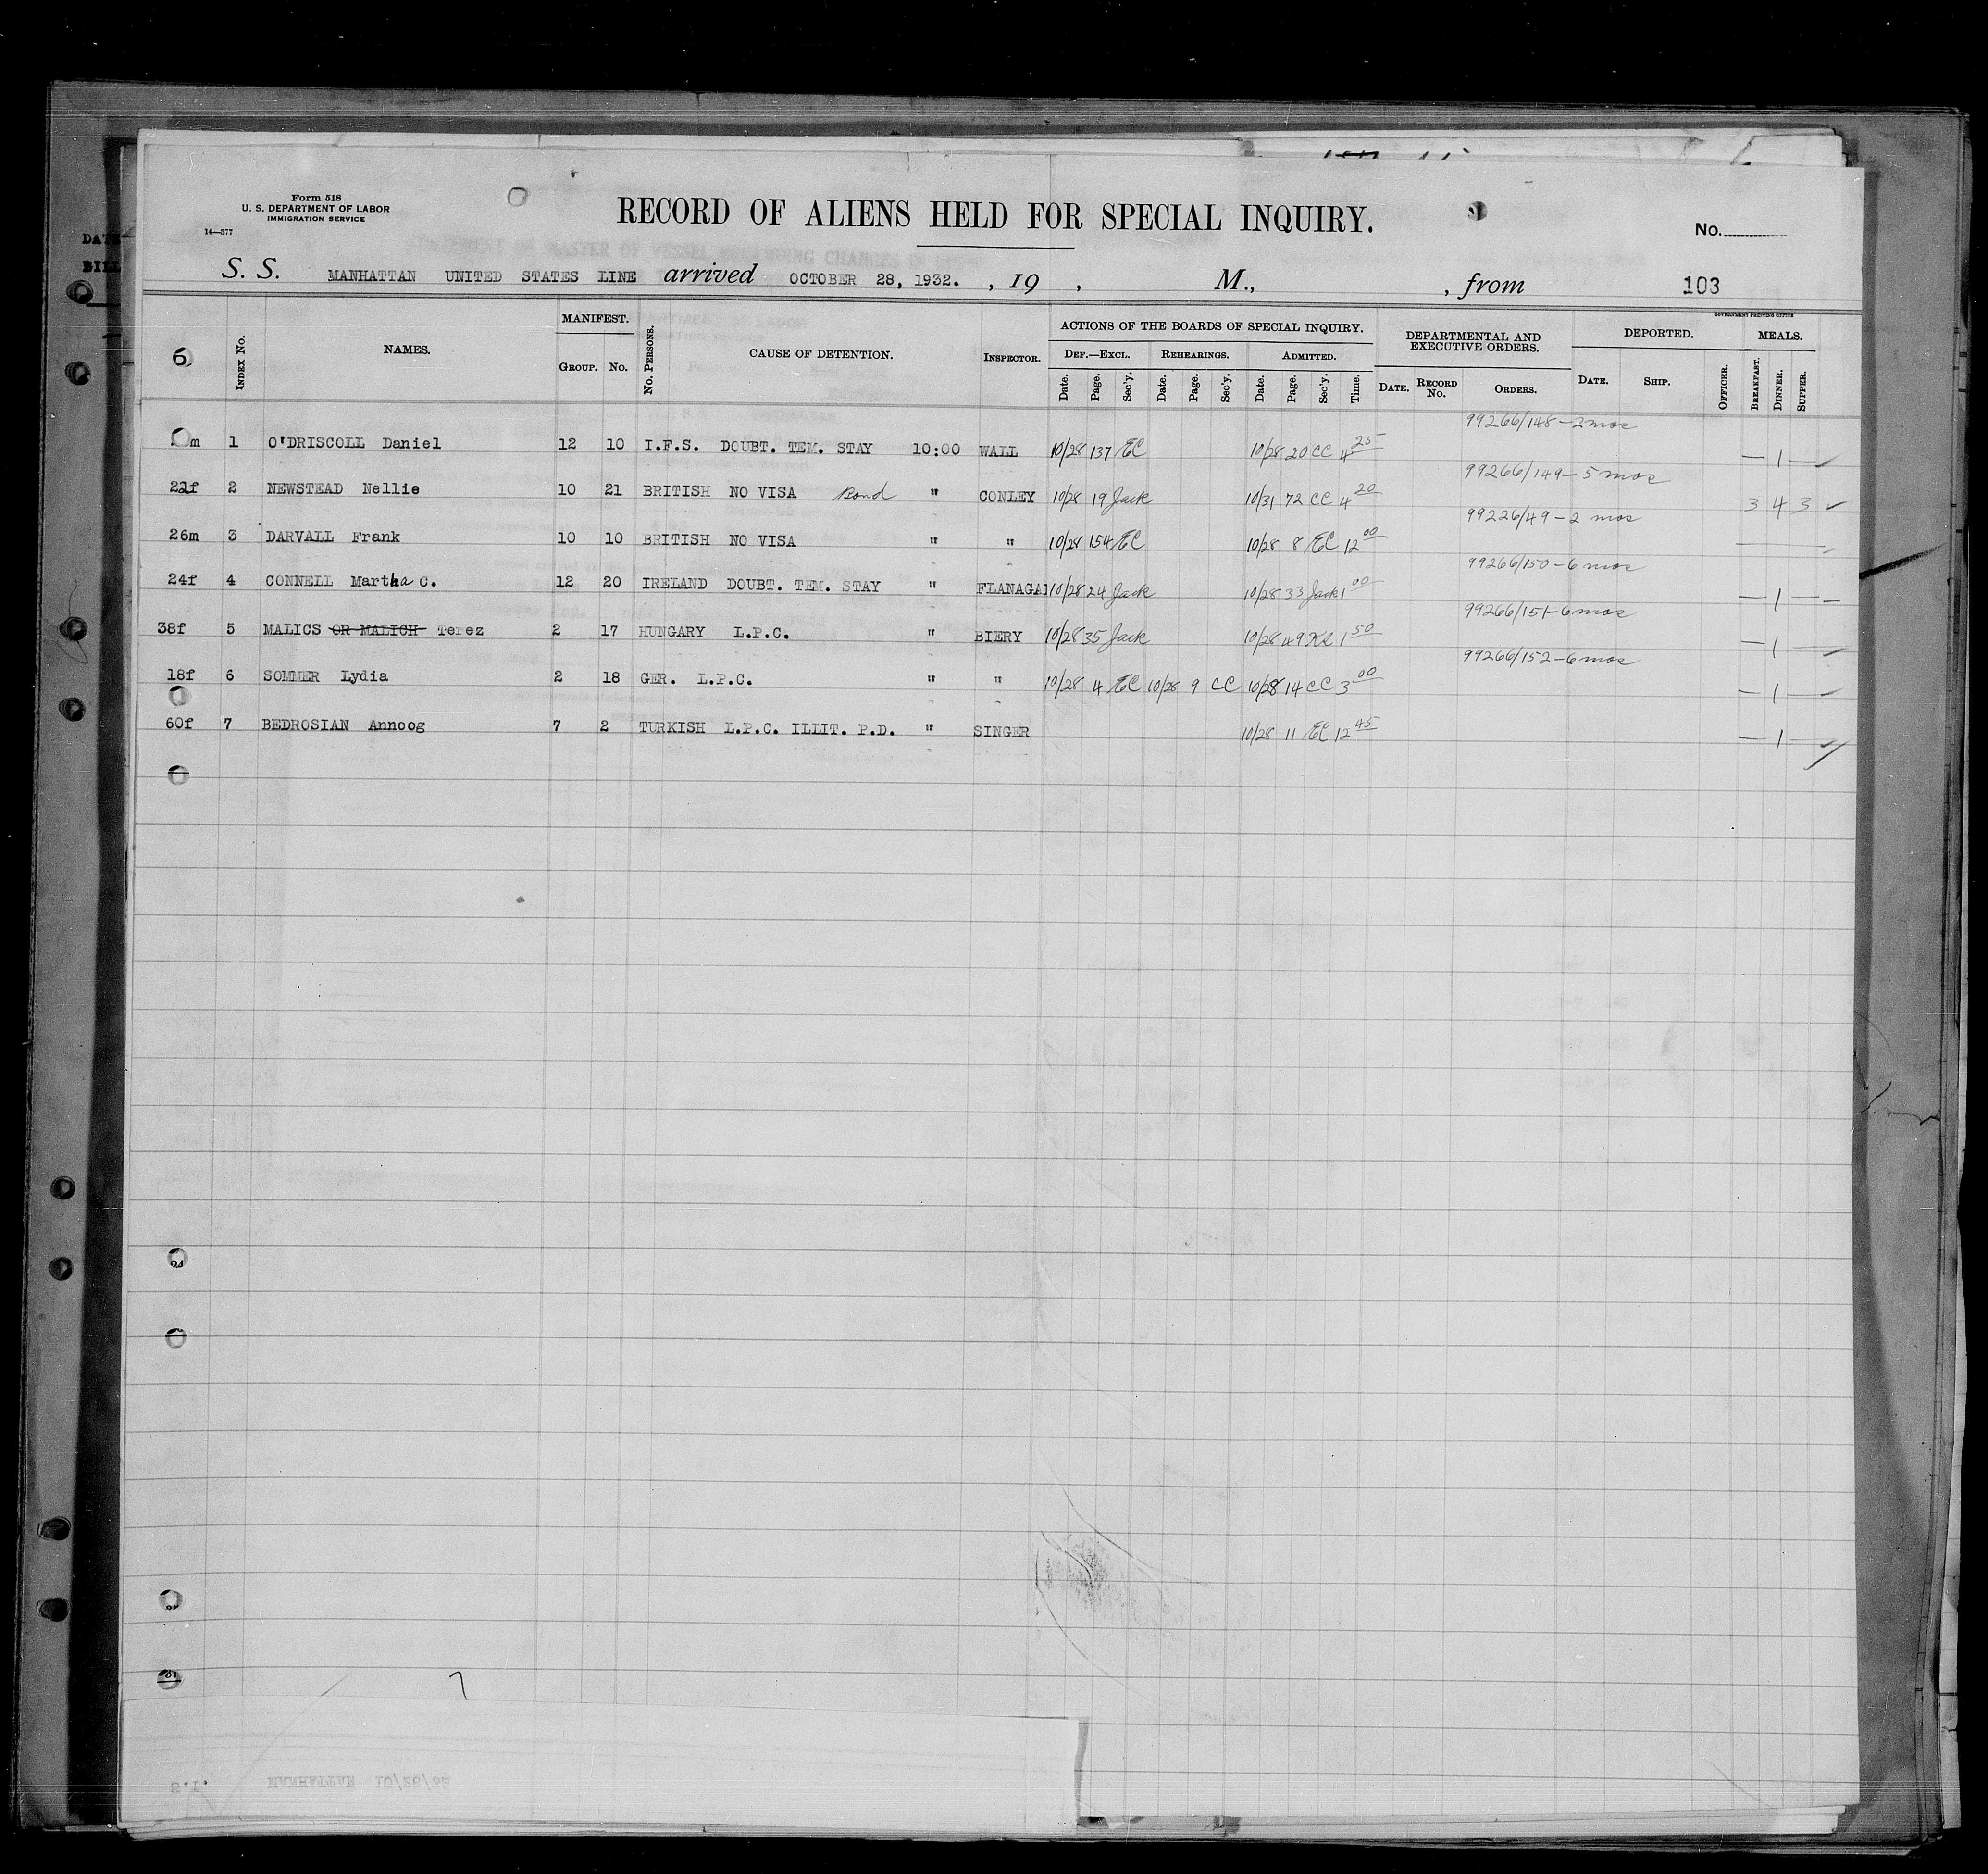 Form 518
U. S. DEPARTMENT OF LABOR
IMMIGRATION SERVICE
14—377
RECORD OF ALIENS HELD FOR SPECIAL INQUIRY.
No.
S. S. MANHATTAN UNITED STATES LINE arrived OCTOBER 28, 1932. , 19 , M., , from 103
GOVERNMENT PRINTING OFFICE
6 INDEX No. NAMES. MANIFEST. GROUP. No. No. PERSONS. CAUSE OF DETENTION. INSPECTOR. ACTIONS OF THE BOARDS OF SPECIAL INQUIRY. DEPARTMENTAL AND EXECUTIVE ORDERS. DEPORTED. MEALS.
DEF.—EXCL. REHEARINGS. ADMITTED.
Date. Page. Sec'y. Date. Page. Sec'y. Date. Page. Sec'y. Time. DATE. RECORD No. ORDERS. DATE. SHIP. OFFICER. BREAKFAST. DINNER. SUPPER.
99266/148-2 mos
m 1 O'DRISCOLL Daniel 12 10 I.F.S. DOUBT. TEM. STAY 10:00 WALL 10/28 137 EC 10/28 20 CC 4 25 — 1 —
99266/149-5 mos
22f 2 NEWSTEAD Nellie 10 21 BRITISH NO VISA Bond " CONLEY 10/28 19 Jack 10/31 72 CC 4 20 3 4 3
99226/49-2 mos
26m 3 DARVALL Frank 10 10 BRITISH NO VISA " " 10/28 154 EC 10/28 8 EC 12 00
99266/150-6 mos
24f 4 CONNELL Martha C. 12 20 IRELAND DOUBT. TEM. STAY " FLANAGAN 10/28 24 Jack 10/28 33 Jack 1 00 — 1 —
99266/151-6 mos
38f 5 MALICS OR MALICH Terez 2 17 HUNGARY L.P.C. " BIERY 10/28 35 Jack 10/28 49 1 50 — 1 —
99266/152-6 mos
18f 6 SOMMER Lydia 2 18 GER. L.P.C. " " 10/28 4 EC 10/28 9 CC 10/28 14 CC 3 00 — 1 —
60f 7 BEDROSIAN Annoog 7 2 TURKISH L.P.C. ILLIT. P.D. " SINGER 10/28 11 EC 12 45 — 1 —
7
S.I. MANHATTAN 10/28/32